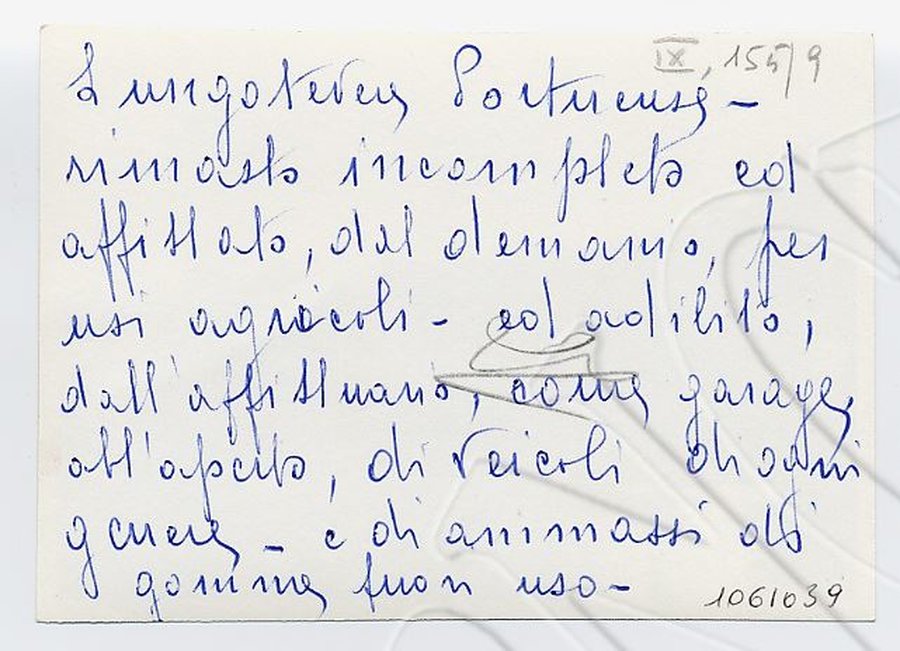 IX, 155/9
Lungotevere Portuense -
rimasto incompleto ed
affittato, dal demanio, per
usi agricoli - ed adibito,
dall'affittuario, come garage,
all'aperto, di veicoli di ogni
genere - e di ammassi di
gomme fuori uso -
1061039